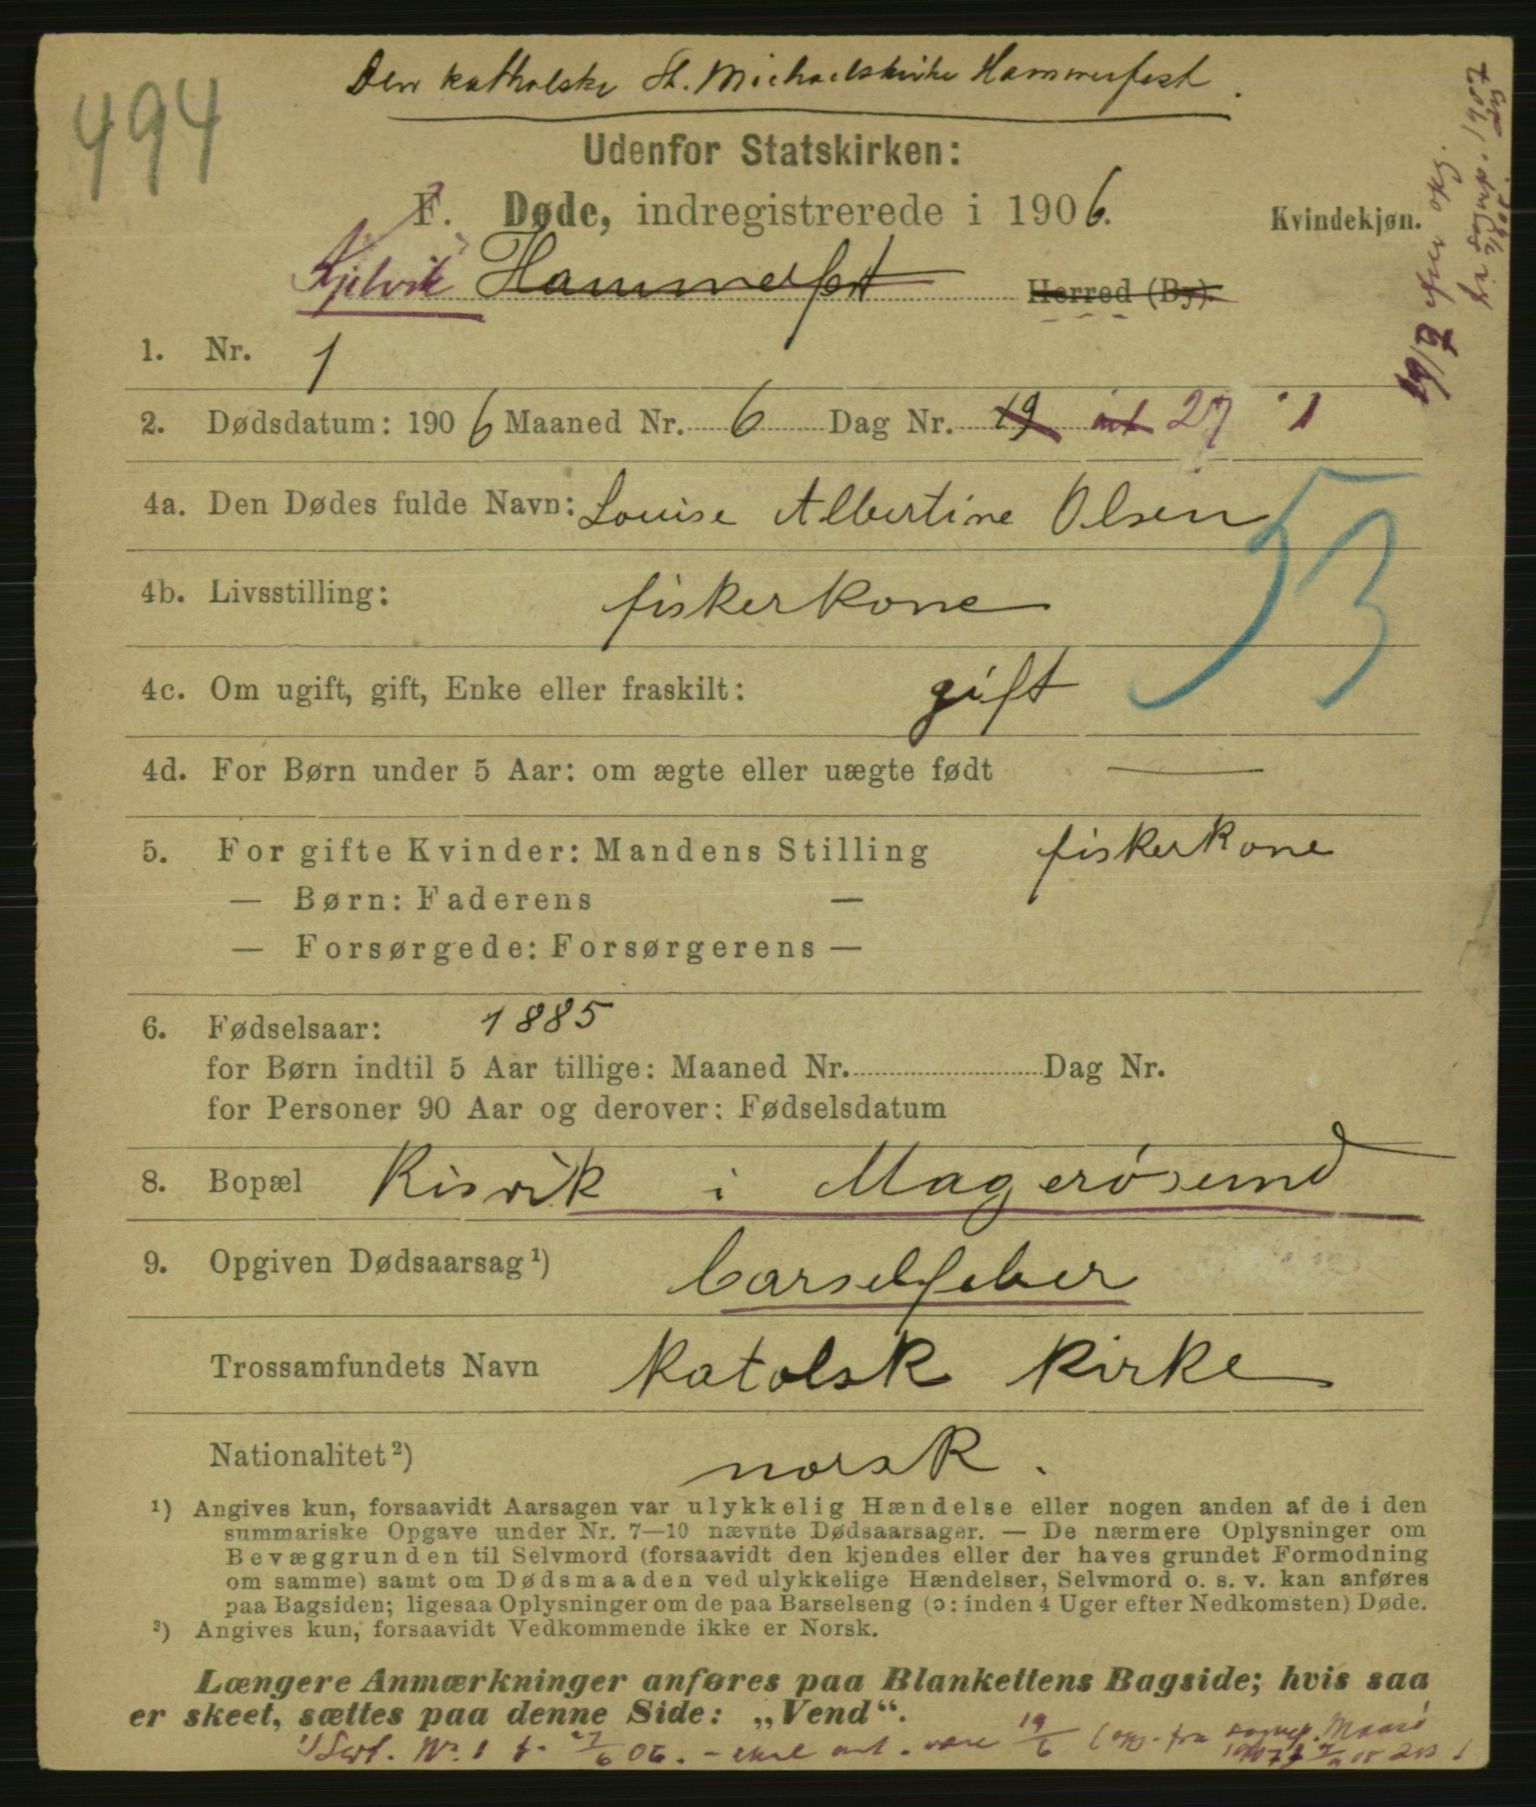 Den katholske St. Michaelskirke Hammerfest.
494
Udenfor Statskirken:
F. Døde, indregistrerede i 1906.
Kvindekjøn.
Kjelvik Hammerfest Herred (By).
1. Nr. 1
2. Dødsdatum: 1906 Maaned Nr. 6 Dag Nr. 19 27 1
4a. Den Dødes fulde Navn: Louise Albertine Olsen
53
4b. Livsstilling: fiskerkone
4c. Om ugift, gift, Enke eller fraskilt: gift
4d. For Børn under 5 Aar: om ægte eller uægte født —
5. For gifte Kvinder: Mandens Stilling fiskerkone
— Børn: Faderens —
— Forsørgede: Forsørgerens —
6. Fødselsaar: 1885
for Børn indtil 5 Aar tillige: Maaned Nr. Dag Nr.
for Personer 90 Aar og derover: Fødselsdatum
8. Bopæl Risvik i Magerösund
9. Opgiven Dødsaarsag ¹) barselfeber
Trossamfundets Navn Katolsk Kirke
Nationalitet ²) norsk.
¹) Angives kun, forsaavidt Aarsagen var ulykkelig Hændelse eller nogen anden af de i den
summariske Opgave under Nr. 7—10 nævnte Dødsaarsager. — De nærmere Oplysninger om
Bevæggrunden til Selvmord (forsaavidt den kjendes eller der haves grundet Formodning
om samme) samt om Dødsmaaden ved ulykkelige Hændelser, Selvmord o. s. v. kan anføres
paa Bagsiden; ligesaa Oplysninger om de paa Barselseng (ɔ: inden 4 Uger efter Nedkomsten) Døde.
²) Angives kun, forsaavidt Vedkommende ikke er Norsk.
Længere Anmærkninger anføres paa Blankettens Bagside; hvis saa
er skeet, sættes paa denne Side: „Vend“.